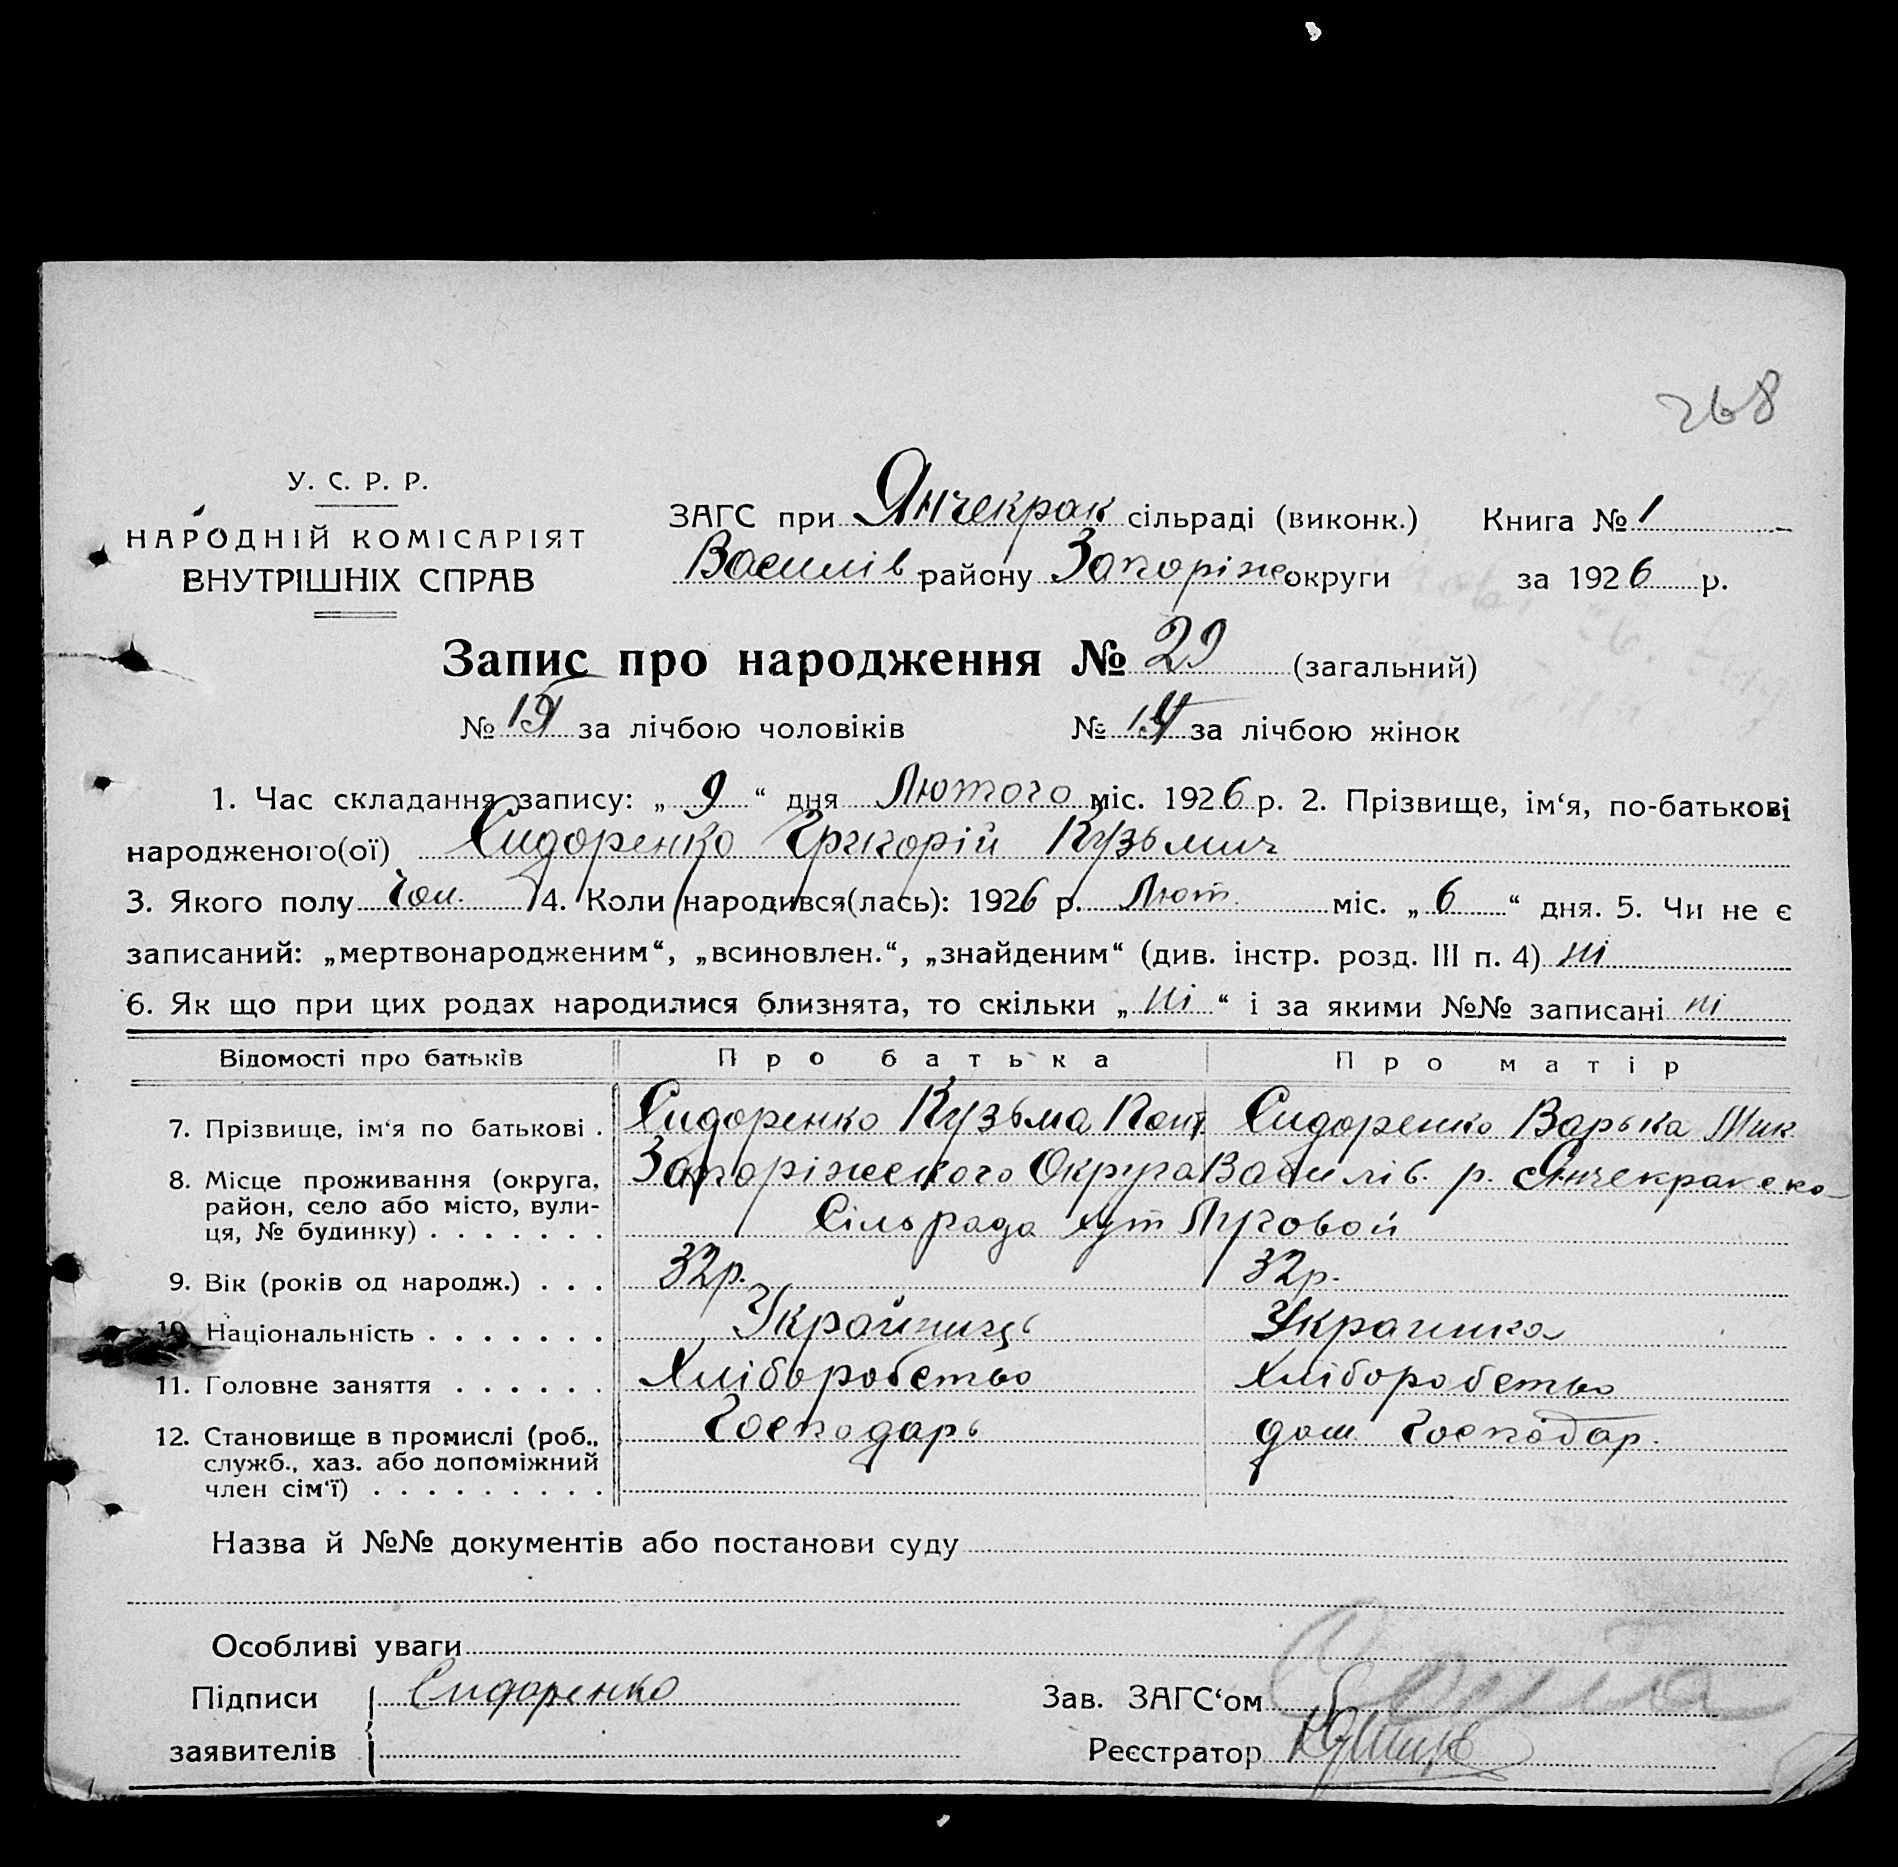 268
У. С. Р. Р.
НАРОДНІЙ КОМІСАРІЯТ
ВНУТРІШНІХ СПРАВ
ЗАГС при Янчекрак сільраді (виконк.) Книга № 1
Василів району Запоріже округи за 1926 р.
Запис про народження № 29 (загальний)
№ за лічбою чоловіків № за лічбою жінок
1. Час складання запису: „ 9 “ дня Лютого міс. 1926 р. 2. Прізвище, ім‘я, по-батькові
народженого(ої) Сидоренко Григорій Кузьмич
3. Якого полу Чол. 4. Коли народився(лась): 1926 р. Лют. міс. „ 6 “ дня. 5. Чи не є
записаний: „мертвонародженим“, „всиновлен.“, „знайденим“ (див. інстр. розд. III п. 4) ні
6. Як що при цих родах народилися близнята, то скільки „ ні “ і за якими №№ записані ні
Відомості про батьків Про батька Про матір
7. Прізвище, ім‘я по батькові . Сидоренко Кузьма Сидоренко Варька Мик
8. Місце проживання (округа, Запоріжського Округа Василів. р. Янчекракско-
район, село або місто, вули-
ця, № будинку) . . . . . . . Сільрада хут Луговой
9. Вік (років од народж.) . . . 32р. 32р.
10. Національність . . . . . . . Українець Украинка
11. Головне заняття . . . . . . Хліборобство Хліборобство
12. Становище в промислі (роб., Господарь дом Господар.
служб., хаз. або допоміжний
член сім‘ї) . . . . . . . . .
Назва й №№ документів або постанови суду
Особливі уваги
Підписи Сидоренко Зав. ЗАГС‘ом
заявителів Реєстратор